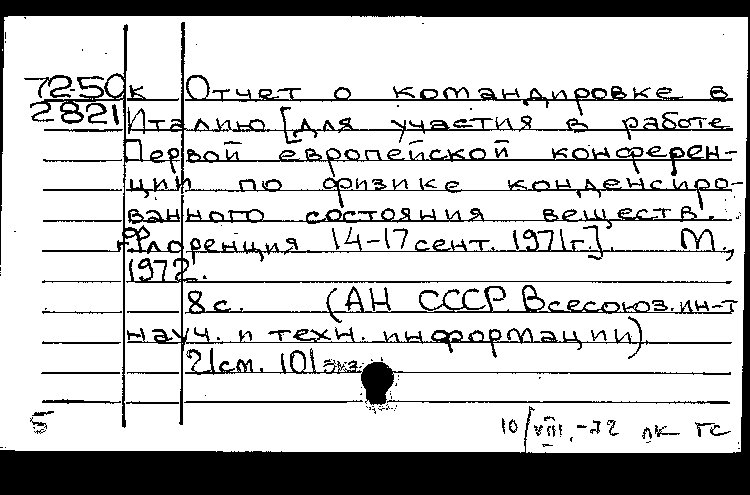 7250к Отчет о командировке в
2821 Италию [для участия в работе
Первой европейской конферен-
ции по физике конденсиро-
ванного состояния веществ.
г. Флоренция. 14-17 сент. 1971г.]. М.,
1972.
8 с. (АН СССР. Всесоюз. ин-т
науч. и техн. информации).
21см. 101экз.
5
10/VIII.-72 лк ГС